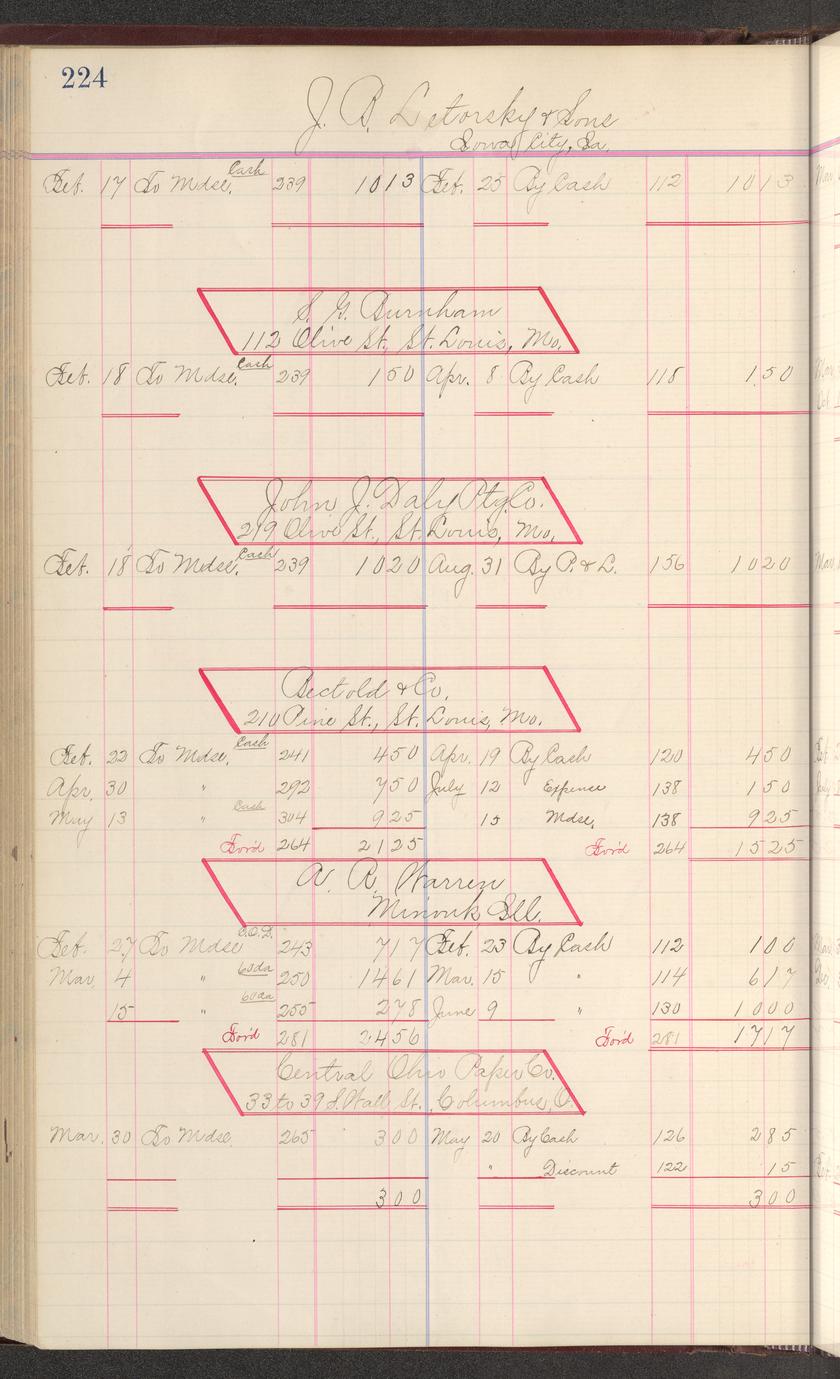 224
J. P. Letorsky & Sons
Iowa City, Ia.
Feb. 17 To Mdse. Cash 239 1013 Feb. 25 By Cash 112 1013
S. G. Burnham
112 Olive St., St. Louis, Mo.
Feb. 18 To Mdse. Cash 239 150 Apr. 8 By Cash 118 150
John J. Daly Ptg. Co.
219 Olive St., St. Louis, Mo.
Feb. 18 To Mdse. Cash 239 1020 Aug. 31 By P. & L. 156 1020
Bectold & Co.
210 Pine St., St. Louis, Mo.
Feb. 22 To Mdse. Cash 241 450 Apr. 19 By Cash 120 450
Apr. 30 " 292 750 July 12 Expense 138 150
May 13 " Cash 304 925 15 Mdse. 138 925
For'd 264 2125 For'd 264 1525
A. R. Warren
Minonk Ill.
Feb. 27 To Mdse C.O.D. 243 717 Feb. 23 By Cash 112 100
Mar. 4 " 60da 250 1461 Mar. 15 " 114 617
15 " 60da 255 278 June 9 " 130 1000
For'd 281 2456 For'd 281 1717
Central Ohio Paper Co.
33 to 39 S. Wall St., Columbus, O.
Mar. 30 To Mdse. 265 300 May 20 By Cash 126 285
" Discount 122 15
300 300